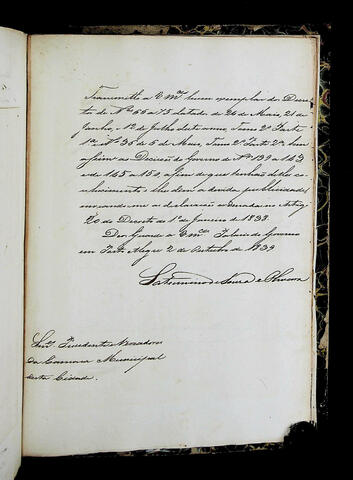 Transmitto a Vmces hum exemplar dos Decre
tos de Nos 66 a 75 datados de 24 de Maio, 21 de
Junho, e 12 de Julho deste anno, Tomo 2º Parte
1ª Nº 35 de 5 de Maio, Tomo 2º Parte 2ª, bem
assim as Decisões do Governo de Nos 139 a 143
e de 145 a 150, afim de que tenhão de tudo co
nhecimento, e lhe dem a devida publicidade
enviando me a declaração exarada no Artigo
20 do Decreto do 1º de Janeiro de 1838.
Deos Guarde a Vmces Palacio do Governo
em Porto Alegre 2 de Outubro de 1839
Saturnino de Souza e Oliveira
Snres Presidente e Vereadores
da Camara Municipal
desta Cidade.